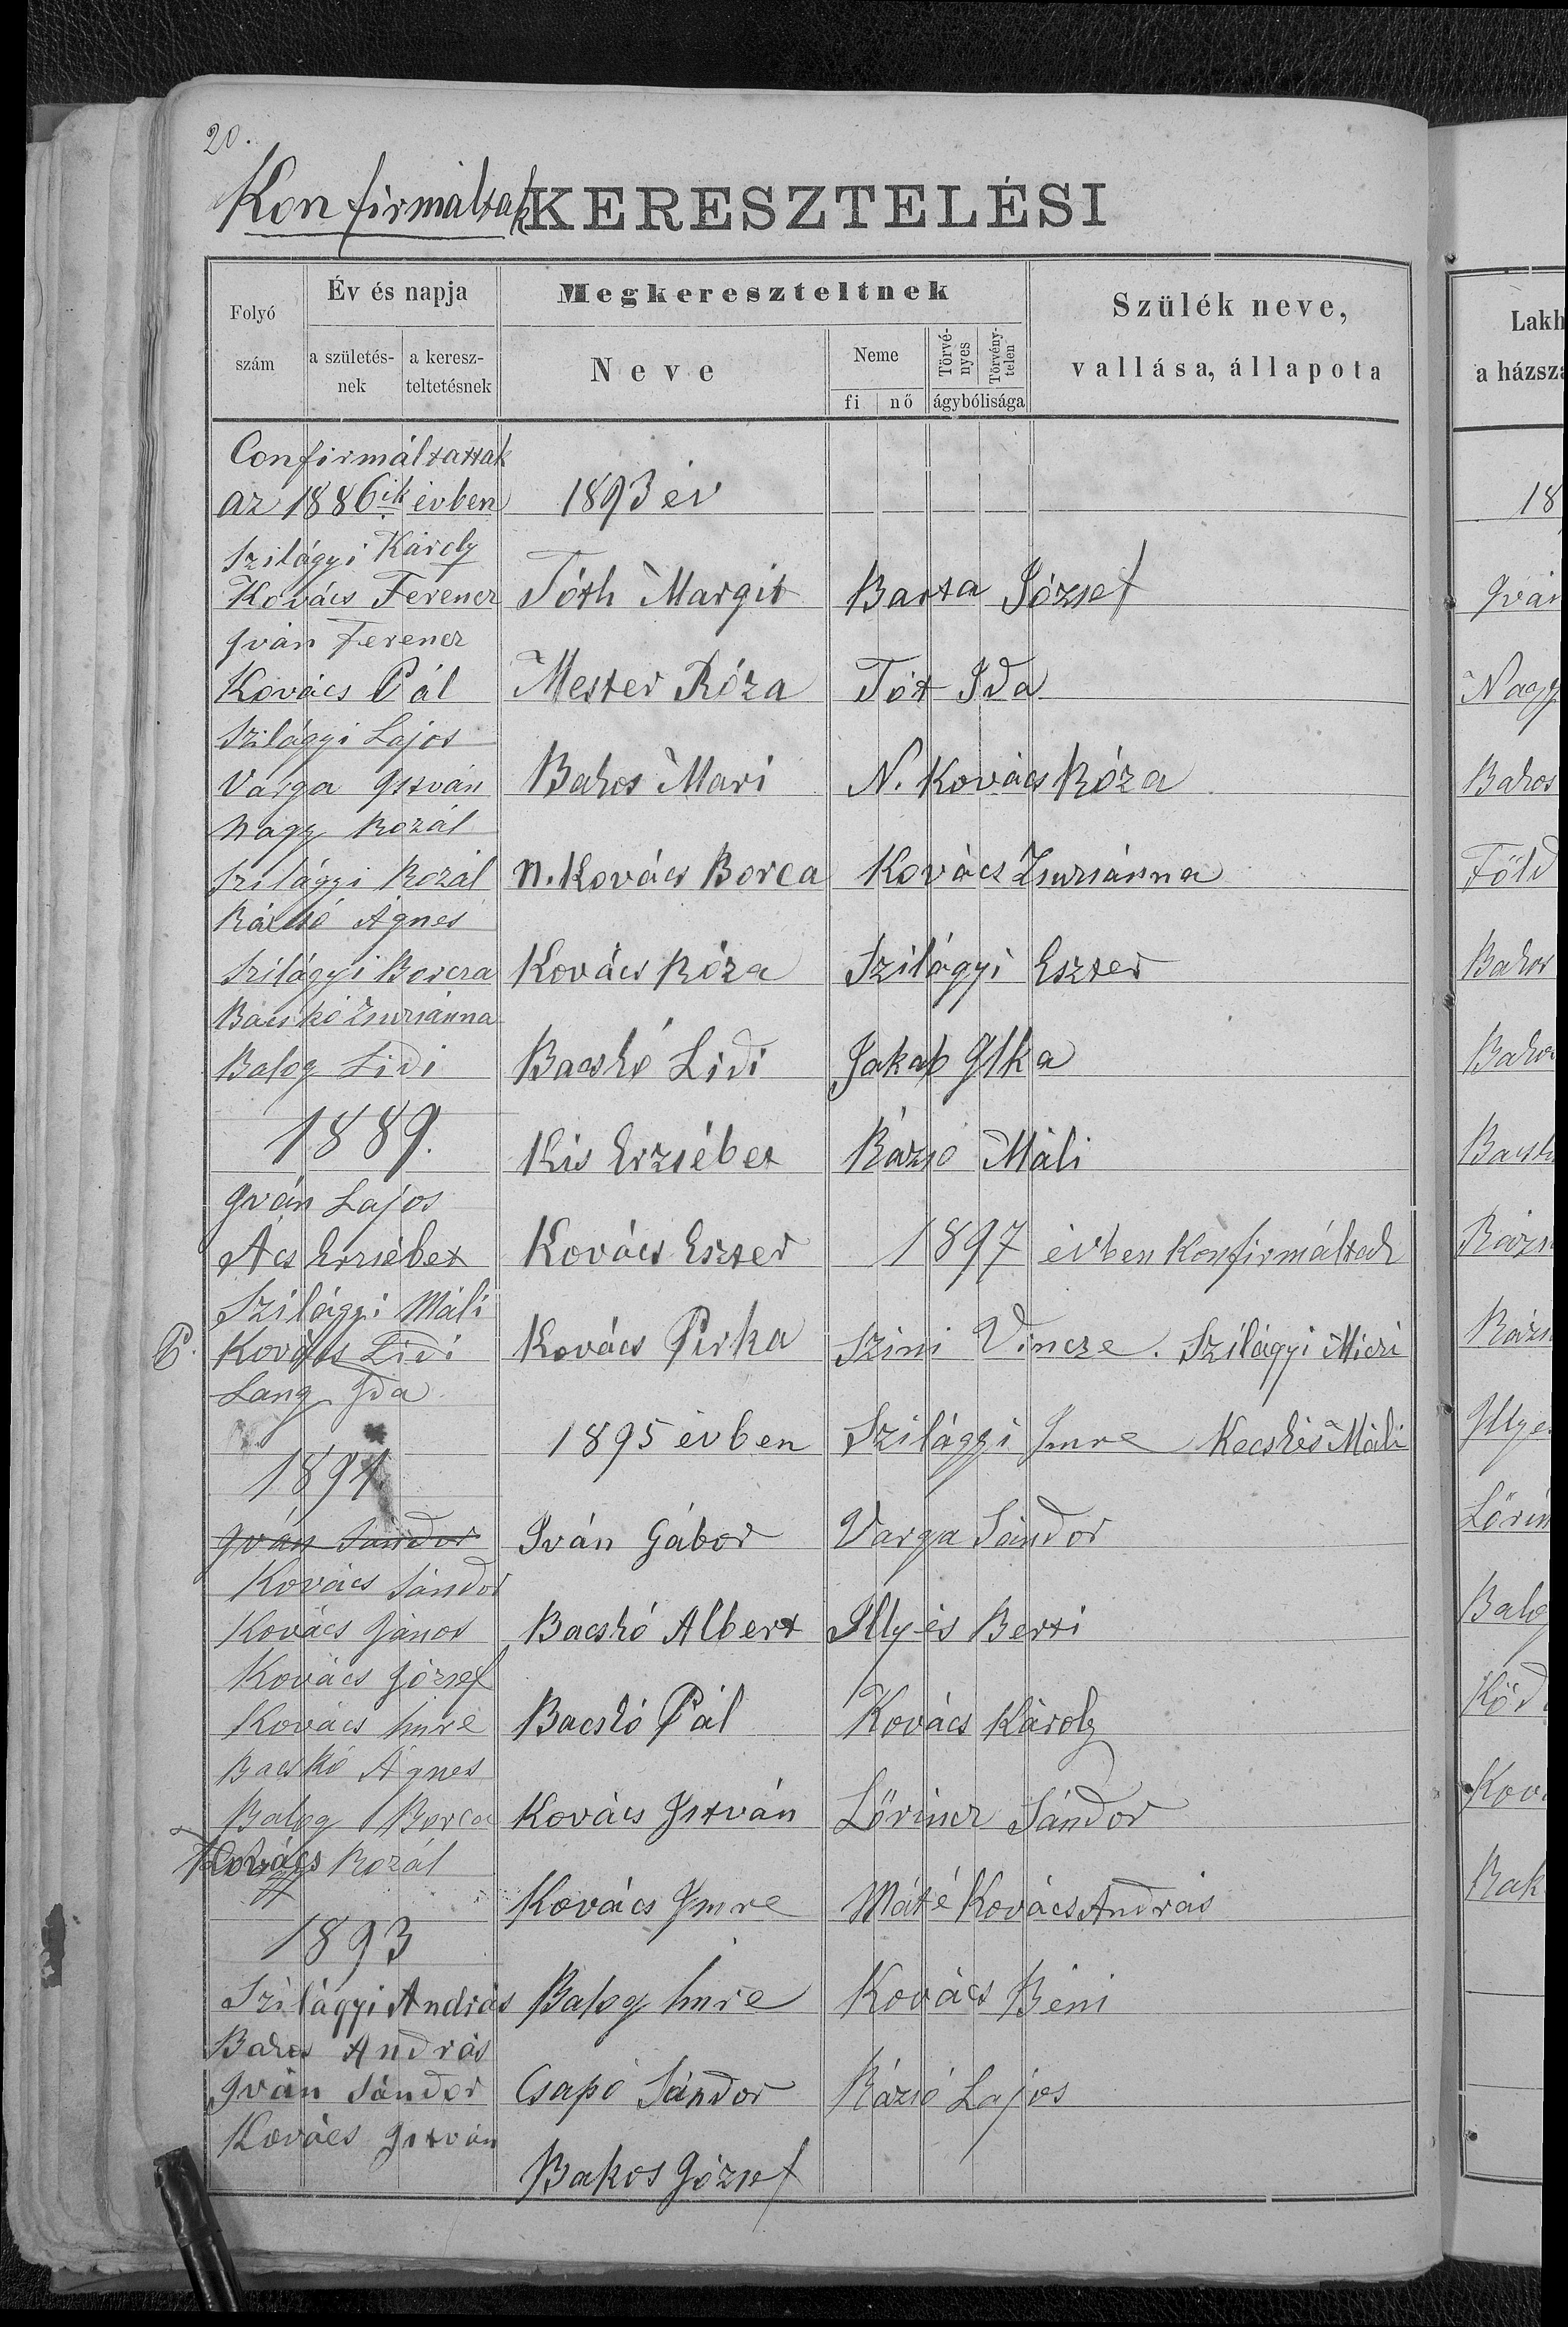 20.
Konfirmáltak KERESZTELÉSI
Folyó szám
Év és napja
a születésnek
a keresz-teltetésnek
Megkereszteltnek
Neve
Neme
fi nő
Törvé-nyes
Törvény-telen
ágybólisága
Szülék neve,
vallása, állapota
Confirmáltattak
az 1886ik évben
Szilágyi Károly
Kovács Ferencz
Iván Ferencz
Kovács Pál
Szilágyi Lajos
Varga István
Nagy Rozál
Szilágyi Rozál
Rázsó Ágnes
Szilágyi Borcza
Bacskó Zsuzsánna
Balog Lidi
1889.
Iván Lajos
Ács Erzsébet
Szilágyi Máli
P. Kovács Lidi
Lang Ida
1891
Iván Sándor
Kovács Sándor
Kovács János
Kovács József
Kovács Imre
Bacskó Ágnes
Balog Borca
Kovács Rozál
1893
Szilágyi András
Bakos András
Iván Sándor
Kovács István
1893 év
Tóth Margit
Mester Róza
Bakos Mari
N. Kovács Borca
Kovács Róza
Bacskó Lidi
Kis Erzsébet
Kovács Eszter
Kovács Pirka
1895 évben
Iván Gábor
Bacskó Albert
Bacskó Pál
Kovács István
Kovács Imre
Balog Imre
Csapó Sándor
Bakos József
Barta József
Tót Ida
N. Kovács Róza
Kovács Zsuzsánna
Szilágyi Eszter
Jakab Ilka
Rázsó Máli
1897 évben Konfirmáltak
Szini Vincze. Szilágyi Miczi
Szilágyi Imre Kecskés Máli
Varga Sándor
Illyés Berti
Kovács Károly
Lőrincz Sándor
Máté Kovács András
Kovács Béni
Rázsó Lajos
Lakh
a házszá
18
Iván
Nagy
Bakos
Föld
Bakos
Bakos
Bacskó
Rázsó
Rázsó
Illyés
Lőrin
Balog
Ková
Bak